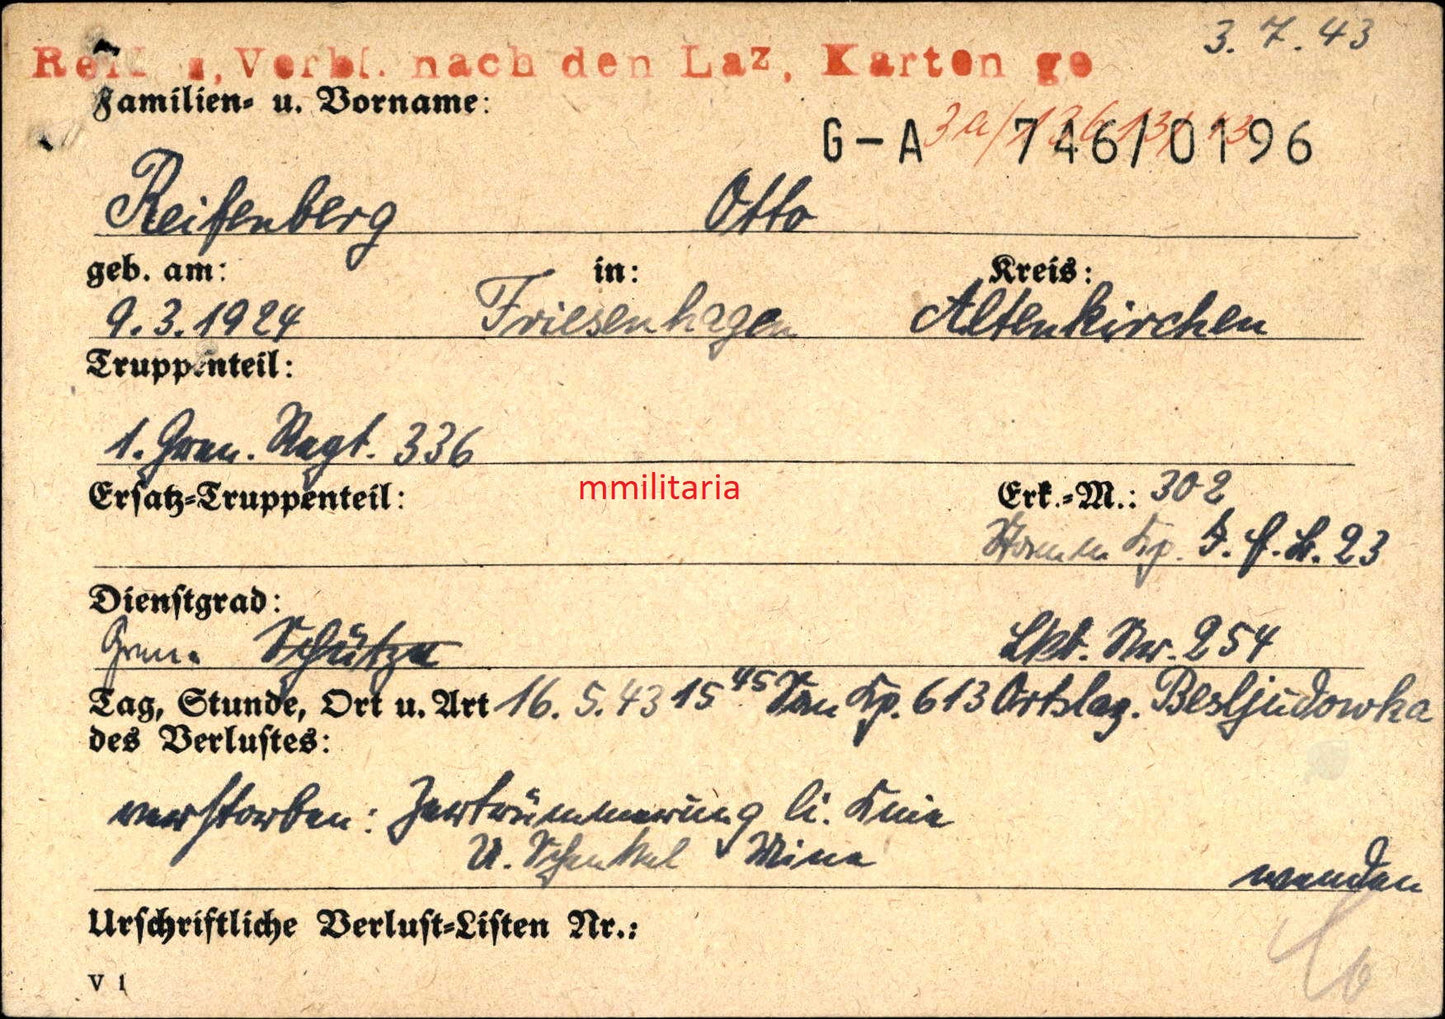 3. 7. 43
Verbl. nach den Laz. Karten ge
Familien- u. Vorname:
G-A 746/0196
Reifenberg Otto
geb. am: in: Kreis:
9.3.1924 Friesenhagen Altenkirchen
Truppenteil:
1. Gren. Regt. 336
Ersatz-Truppenteil: Erk.-M.: 302
mmilitaria
Stamm Kp. J. E. B. 23
Dienstgrad:
Gren. Schütze Lkt. Nr. 254
Tag, Stunde, Ort u. Art 16. 5. 43 15 45 San Kp. 613 Ortslag. Besljudowka
des Verlustes:
verstorben: Zertrümmerung li. Knie
U. Schenkel Mine
wenden
Urschriftliche Verlust-Listen Nr.:
V 1